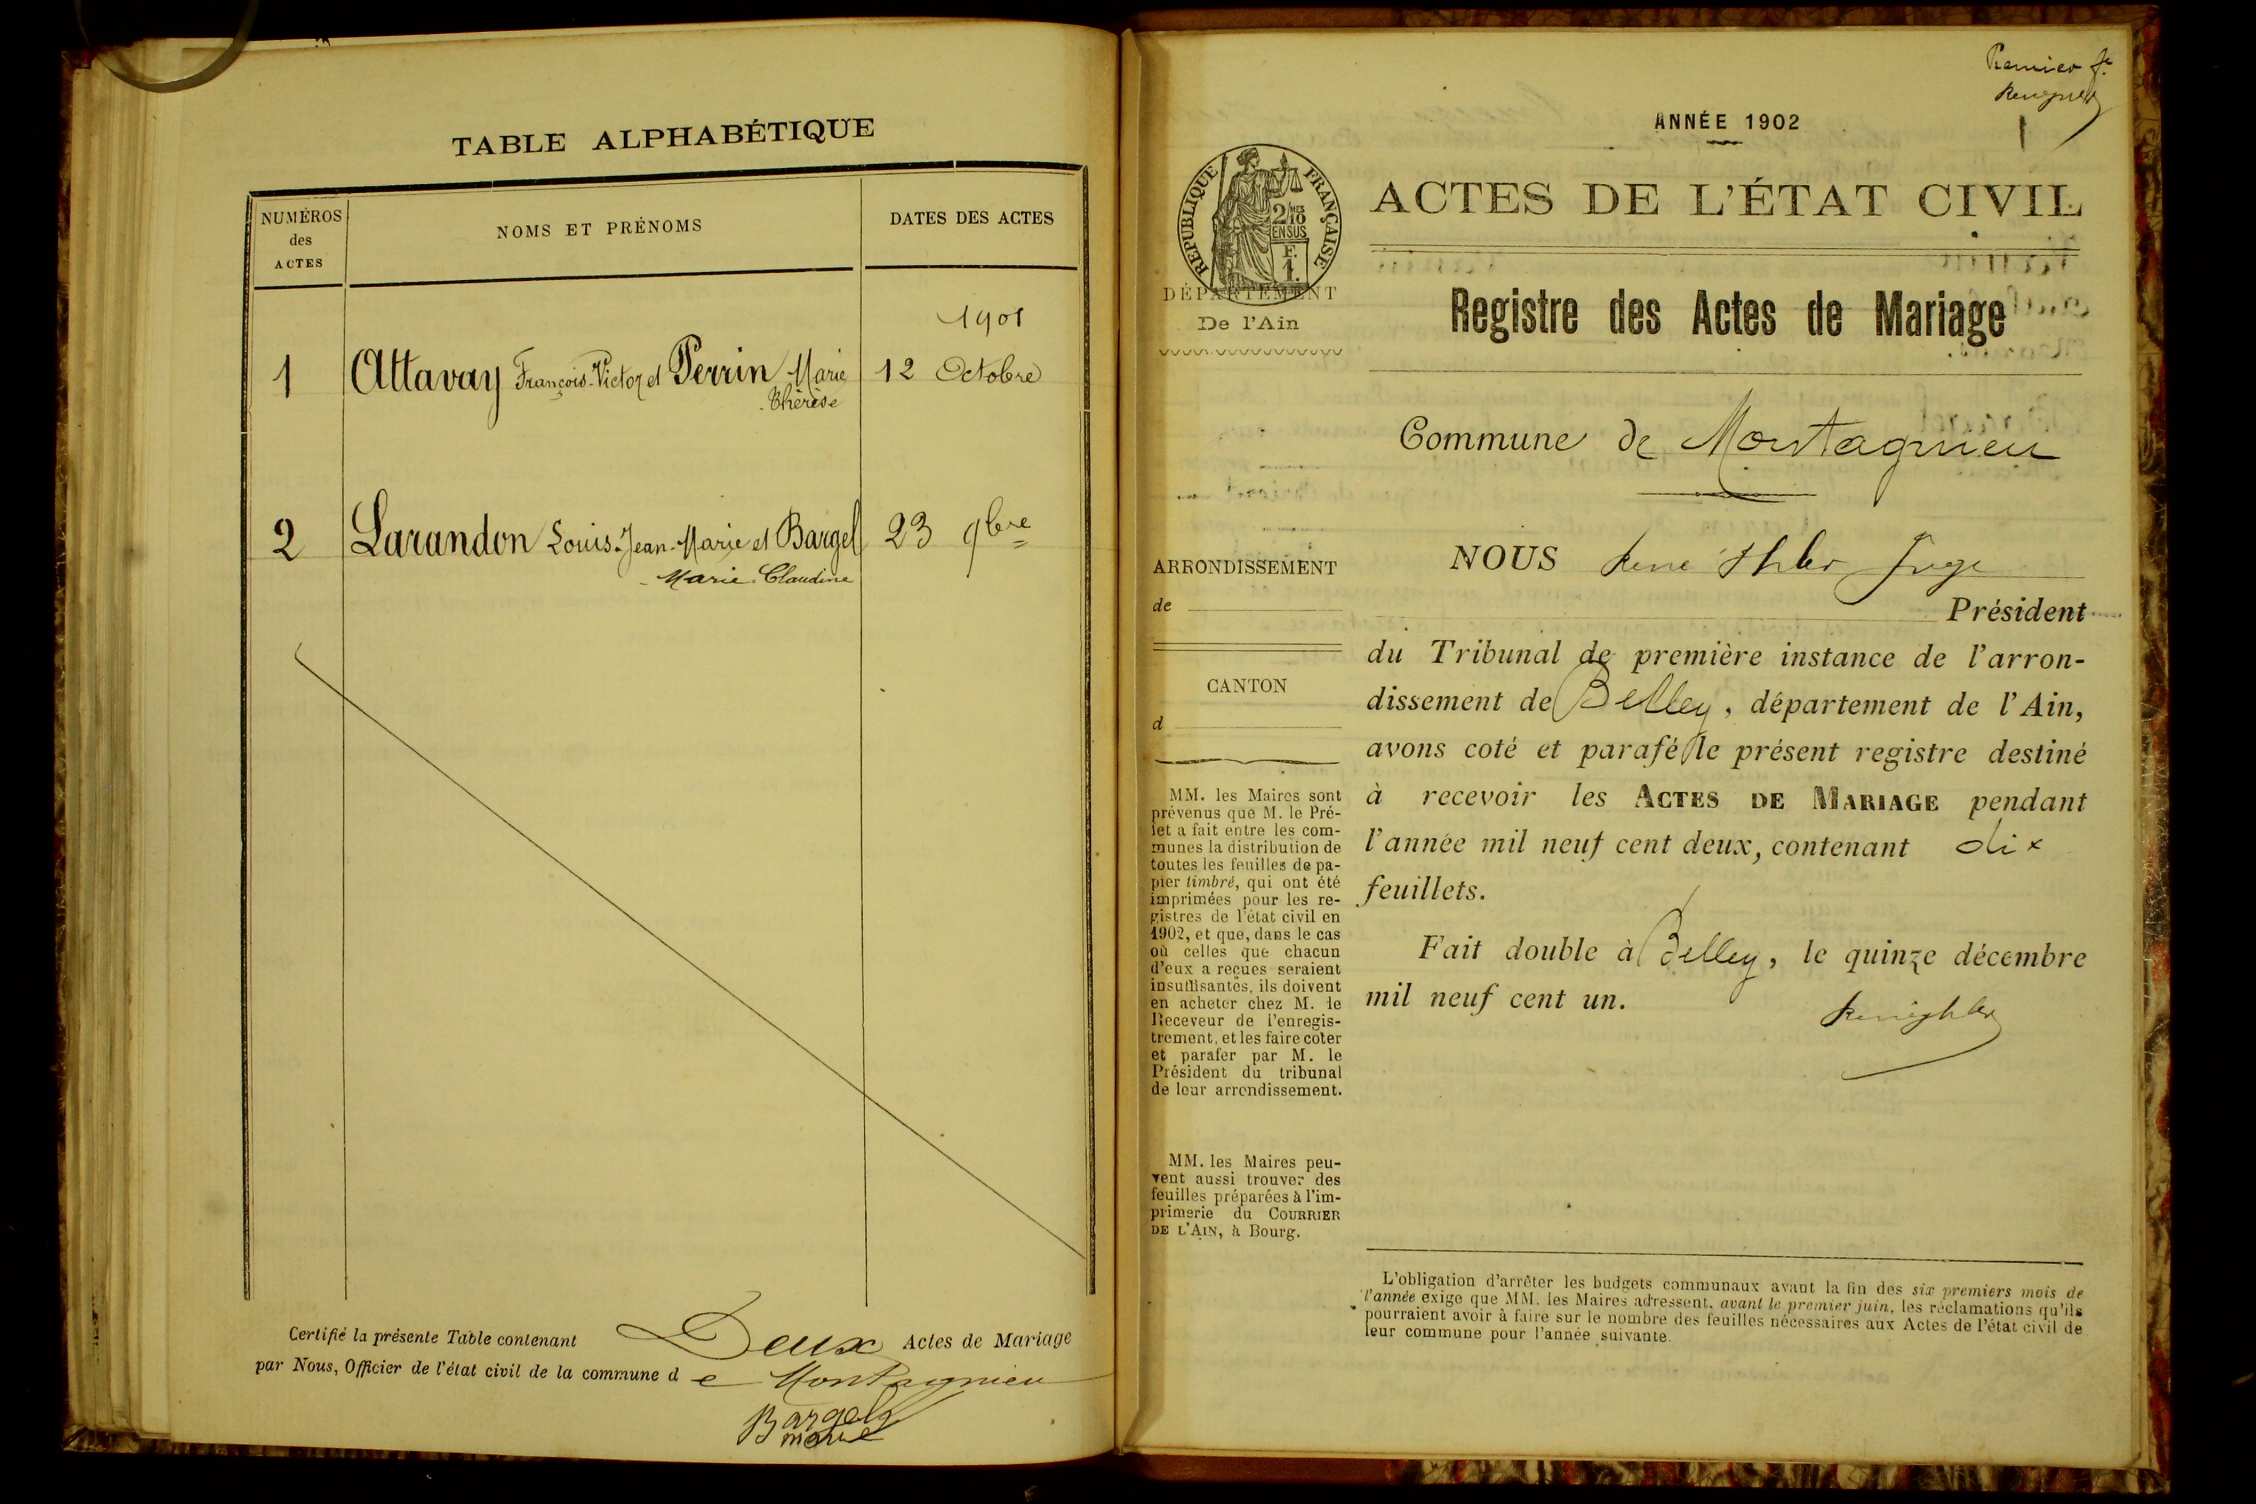 TABLE ALPHABÉTIQUE
NUMÉROS
des
ACTES
NOMS ET PRÉNOMS
DATES DES ACTES
1901
1 Attavay François-Victor et Perrin Marie 12 Octobre
Thérèse
2 Larandon Louis-Jean-Marie et Bargel 23 9bre
Marie-Claudine
Certifié la présente Table contenant Deux Actes de Mariage
par Nous, Officier de l'état civil de la commune de Montagnieu
Bargel
maire
Premier f.
1
ANNÉE 1902
ACTES DE L'ÉTAT CIVIL
RÉPUBLIQUE FRANÇAISE
2/10MES
EN SUS
F.
1.
DÉPARTEMENT
De l'Ain
Registre des Actes de Mariage
Commune de Montagnieu
ARRONDISSEMENT
de
CANTON
d
MM. les Maires sont
prévenus que M. le Pré-
fet a fait entre les com-
munes la distribution de
toutes les feuilles de pa-
pier timbré, qui ont été
imprimées pour les re-
gistres de l'état civil en
1902, et que, dans le cas
où celles que chacun
d'eux a reçues seraient
insuffisantes, ils doivent
en acheter chez M. le
Receveur de l'enregis-
trement, et les faire coter
et parafer par M. le
Président du tribunal
de leur arrondissement.
MM. les Maires peu-
vent aussi trouver des
feuilles préparées à l'im-
primerie du COURRIER
DE L'AIN, à Bourg.
NOUS René Juge
Président
du Tribunal de première instance de l'arron-
dissement de Belley, département de l'Ain,
avons coté et parafé le présent registre destiné
à recevoir les ACTES DE MARIAGE pendant
l'année mil neuf cent deux, contenant dix
feuillets.
Fait double à Belley, le quinze décembre
mil neuf cent un.
L'obligation d'arrêter les budgets communaux avant la fin des six premiers mois de
l'année exige que MM. les Maires adressent, avant le premier juin, les réclamations qu'ils
pourraient avoir à faire sur le nombre des feuilles nécessaires aux Actes de l'état civil de
leur commune pour l'année suivante.